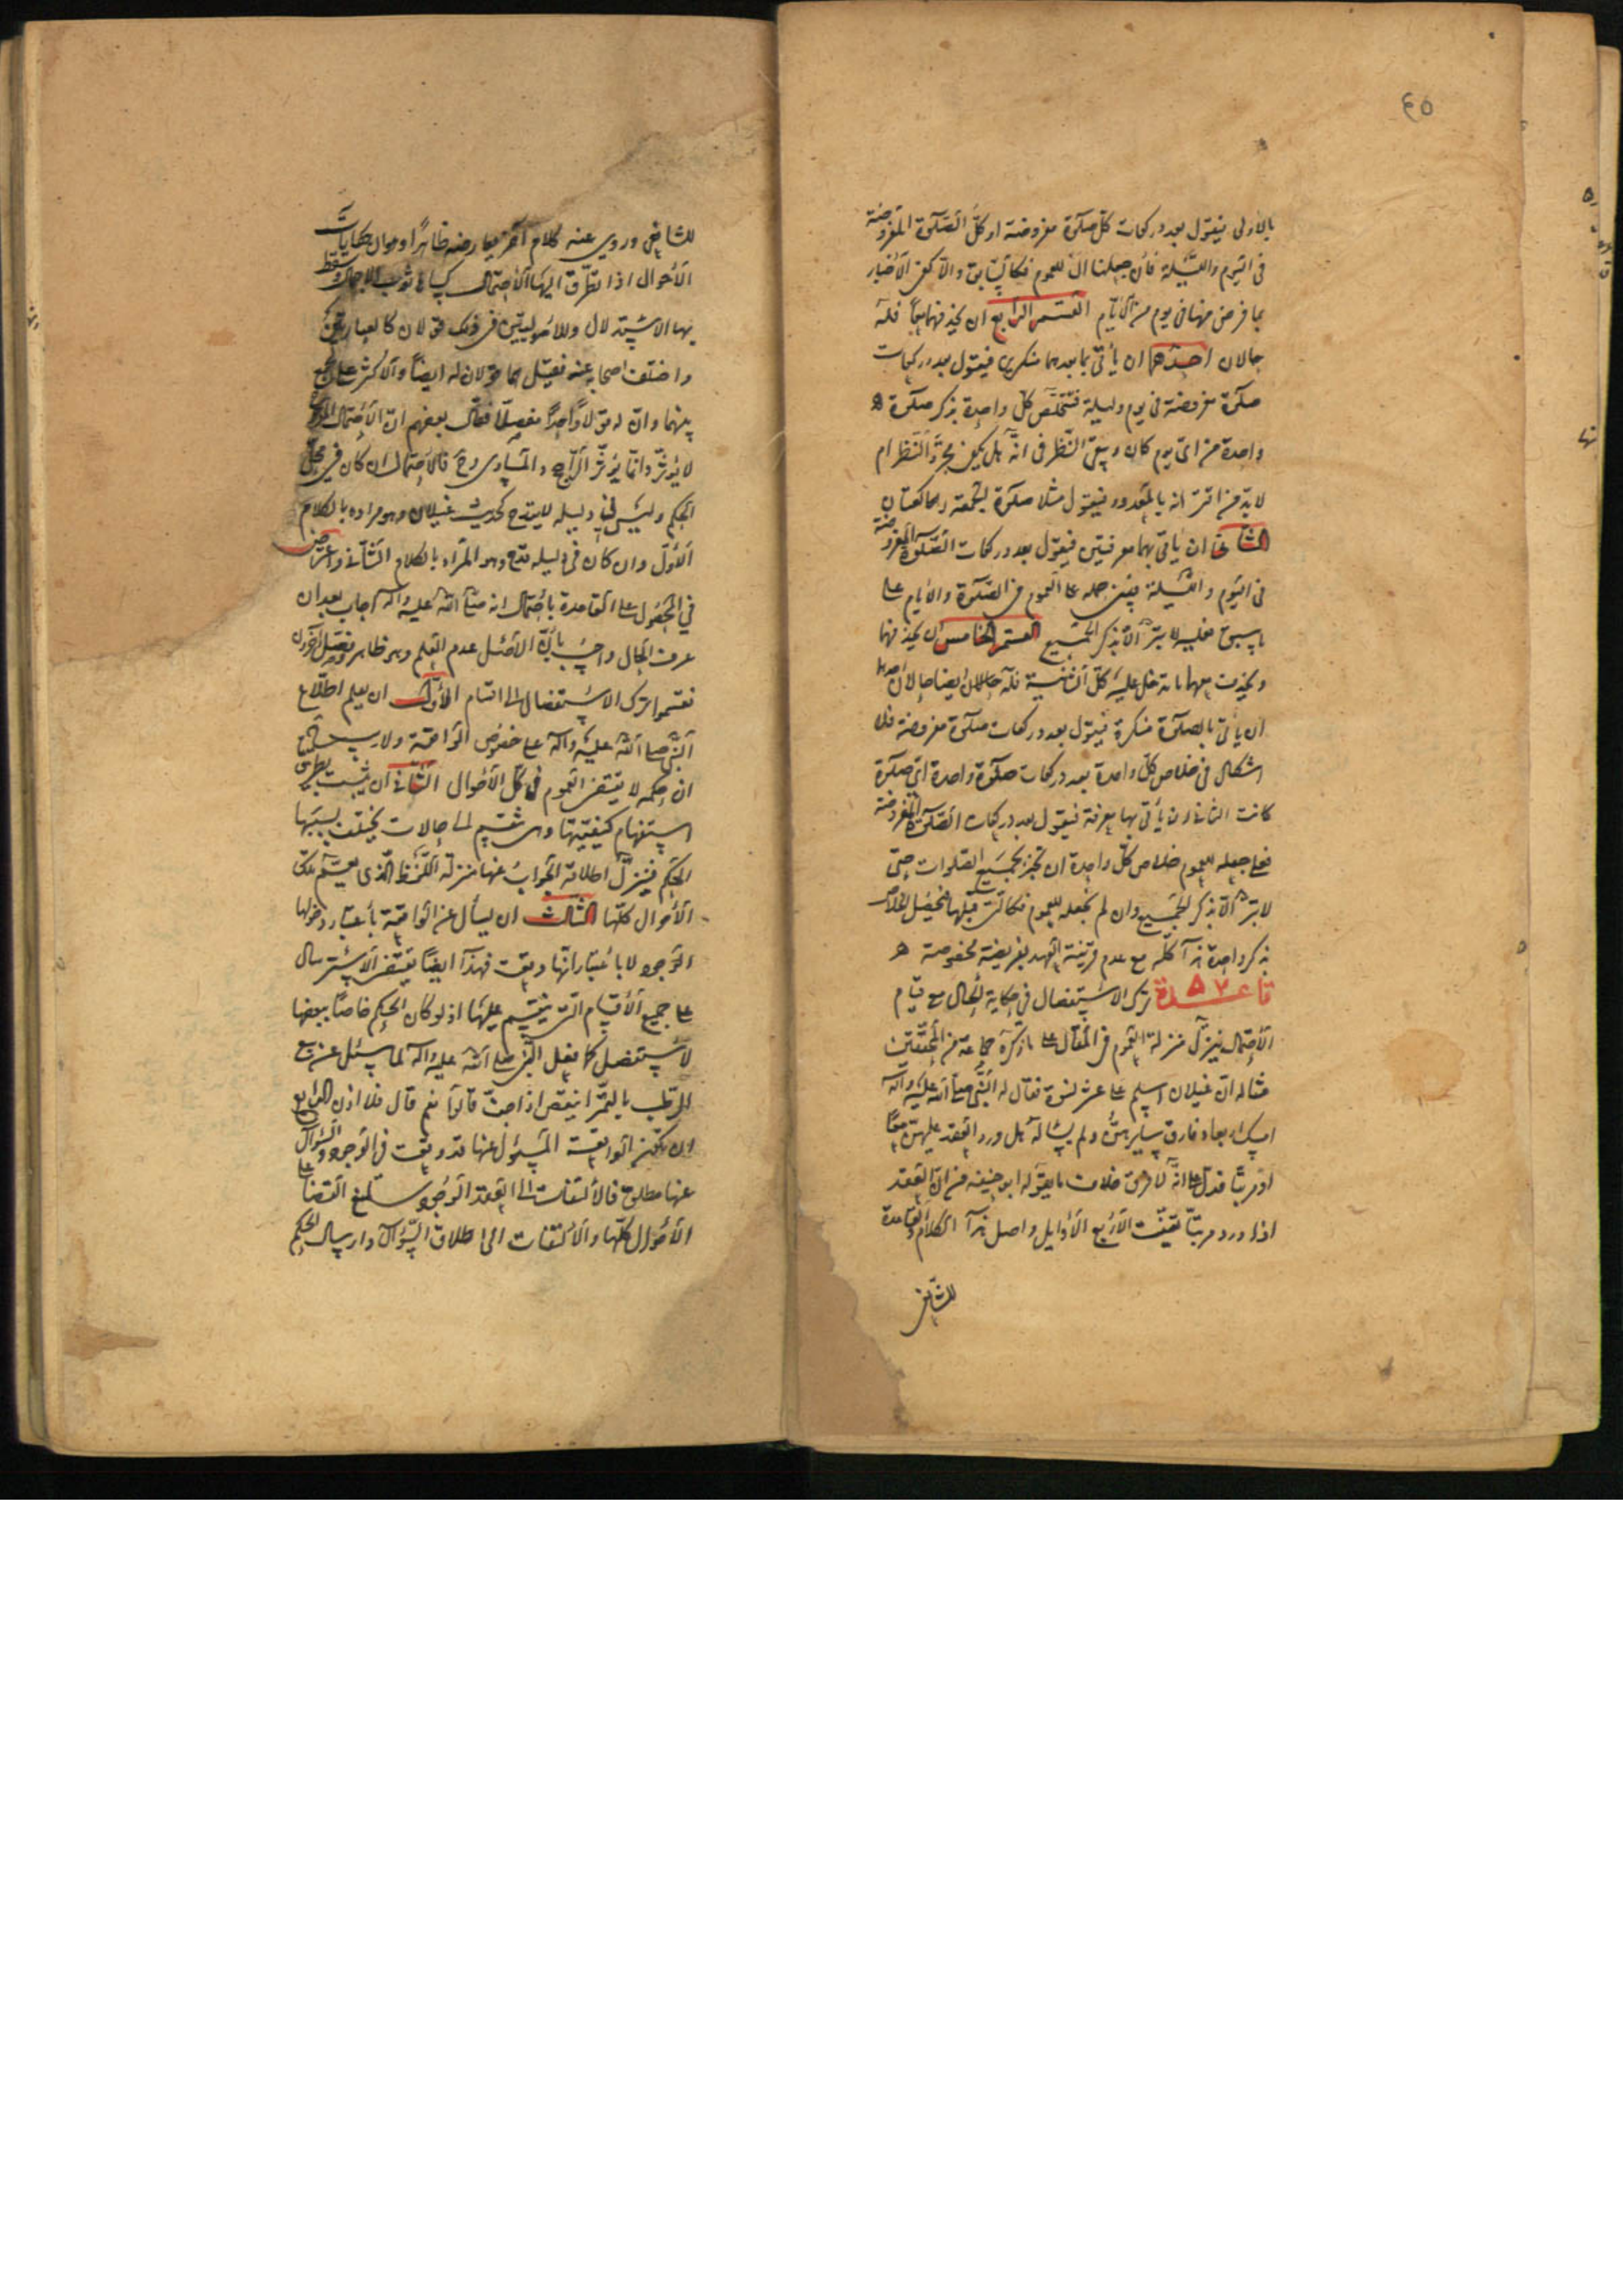 ٤٥
بالاولى فيقول بعدد ركعات كلّ صلوة مفروضة او كلّ الصّلوة المفروضة
فى اليوم واللّيلة فان جعلنا ال للعموم فكالسّابق والّا كفى الاخبار
بما فرض منها فى يوم من الايّام القسم الرابع ان يحذفهما معا فله
حالان احدهما ان يأتى بما بعدهما منكرين فيقول بعدد ركعات
صلوة مفروضة فى يوم وليلة فتخلّص كلّ واحدة بذكر صلوة
واحدة من اىّ يوم كان ويبقى النّظر فى انّه هل يكفى مجرّد النّظر ام
لا بدّ من اقترانه بالمعدود فيقول مثلا صلوة الجمعة ركعتان
الثانى ان ياتى بهما معرفتين فيقول بعدد ركعات الصّلوة المفروضة
فى اليوم واللّيلة فينبنى حمله على العموم فى الصّلوة والايام على
ما سبق فعليه لا تبرّ الّا بذكر الجميع القسم الخامس ان يحذف منها
ويحذف معها ما تدخل عليه كلّ الثانية فله حالان ايضا حالان احدهما
ان يأتى بالصلوة منكرة فيقول بعدد ركعات صلوة مفروضة فلا
اشكال فى خلاص كلّ واحدة بعدد ركعات صلوة واحدة اىّ صلوة
كانت الثانى ان يأتى بها معرفة فيقول بعدد ركعات الصّلوة المفروضة
فعلى جعله للعموم خلاص كلّ واحدة ان تخبر بجميع الصّلوات حتى
لا تبرّ الّا بذكر الجميع وان لم نجعله للعموم فكالّتى قبلها فيحصل الخلاص
بذكر واحدة هذا كلّه مع عدم قرينة العهد بفريضة مخصوصة
قاعدة ٥٧ ترك الاستفصال فى حكاية الحال مع قيام
الاحتمال ينزّل منزلة العموم فى المقال على ما ذكره جماعة من المحقّقين
مثاله انّ غيلان اسلم على عشر نسوة فقال له النّبى صلّى اللّه عليه وآله
امسك اربعا وفارق سايرهنّ ولم يسأله هل ورد العقد عليهنّ معًا
او مرتّبا فدلّ على انّه لا فرق خلاف ما يقوله ابو حنيفه من انّ العقد
اذا ورد مرتبًا تعيّنت الاربع الاوايل واصل هذا الكلام والقاعدة
للشافعى
للشافعى وروي عنه كلام آخر يعارضه ظاهرًا وهو ان حكايات
الاحوال اذا تطرّق اليها الاحتمال كساها ثوب الاجمال وسقط
بها الاستدلال وللاصوليين فى ذلك قولان كالعبارتين
واختلف اصحابه عنه فقيل هما قولان له ايضًا والاكثر على الجمع
بينهما وانّ له قولًا واحدًا مفصلًا فقال بعضهم انّ الاحتمال المرجوح
لا يؤثّر وانّما يؤثّر الراجح والمساوى وح فالاحتمال ان كان فى محلّ
الحكم وليس فى دليله لا يقدح كحديث غيلان وهو مراده بالكلام
الاوّل وان كان فى دليله قدح وهو المراد بالكلام الثانى واعترض
في المحصول على القاعدة باحتمال انه صلّى اللّه عليه وآله اجاب بعد ان
عرف الحال واجيب بانّ الاصل عدم العلم وهو ظاهر وفصّل آخرون
فقسموا ترك الاستفصال الى اقسام الاوّل ان يعلم اطلاع
النّبى صلّى اللّه عليه وآله على خصوص الواقعة ولا ريب ح
ان حكمه لا يقتضى العموم فى كلّ الاحوال الثّانى ان يثبت بطريق
استفهام كيفيّتها وهى تنقسم الى حالات يختلف بسببها
الحكم فينزّل اطلاقه الجواب عنها منزلة اللّفظ الّذى يعمّ تلك
الاحوال كلّها الثالث ان يسأل عن الواقعة باعتبار دخولها
الوجود لا باعتبار انّها وقعت فهذا ايضًا يقتضى الاسترسال
على جميع الاقسام الّتى ينقسم عليها اذ لو كان الحكم خاصّا ببعضها
لاستفصل كما فعل النّبى صلّى اللّه عليه وآله لما سئل عن بيع
الرطب بالتّمر اينقص اذا جفّ قالوا نعم قال فلا اذن الرابع
ان تكون الواقعة المسئول عنها قد وقعت فى الوجود والسّؤال
عنها مطلق فالالتفات الى القيد الوجودى يمنع القضا على
الاحوال كلّها والالتفات الى اطلاق السّؤال وارسال الحكم